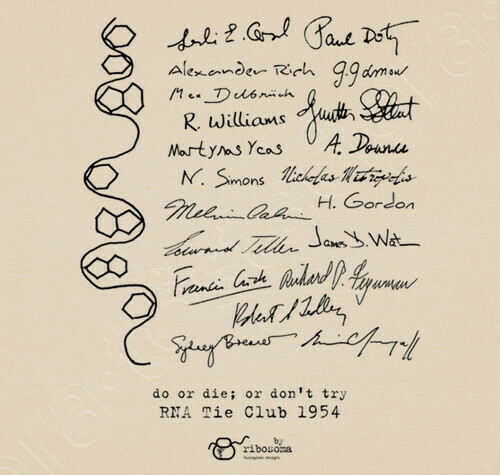 Leslie E. Orgel Paul Doty
Alexander Rich G. Gamow
Max Delbrück Gunther Stent
R. Williams
Martynas Ycas A. Dounce
N. Simons Nicholas Metropolis
Melvin Calvin H. Gordon
Edward Teller James D. Wat
Francis Crick Richard P. Feynman
Robert S Ledley
Sydney Brenner Erwin Chargaff
do or die; or don't try
RNA Tie Club 1954
by
ribosoma